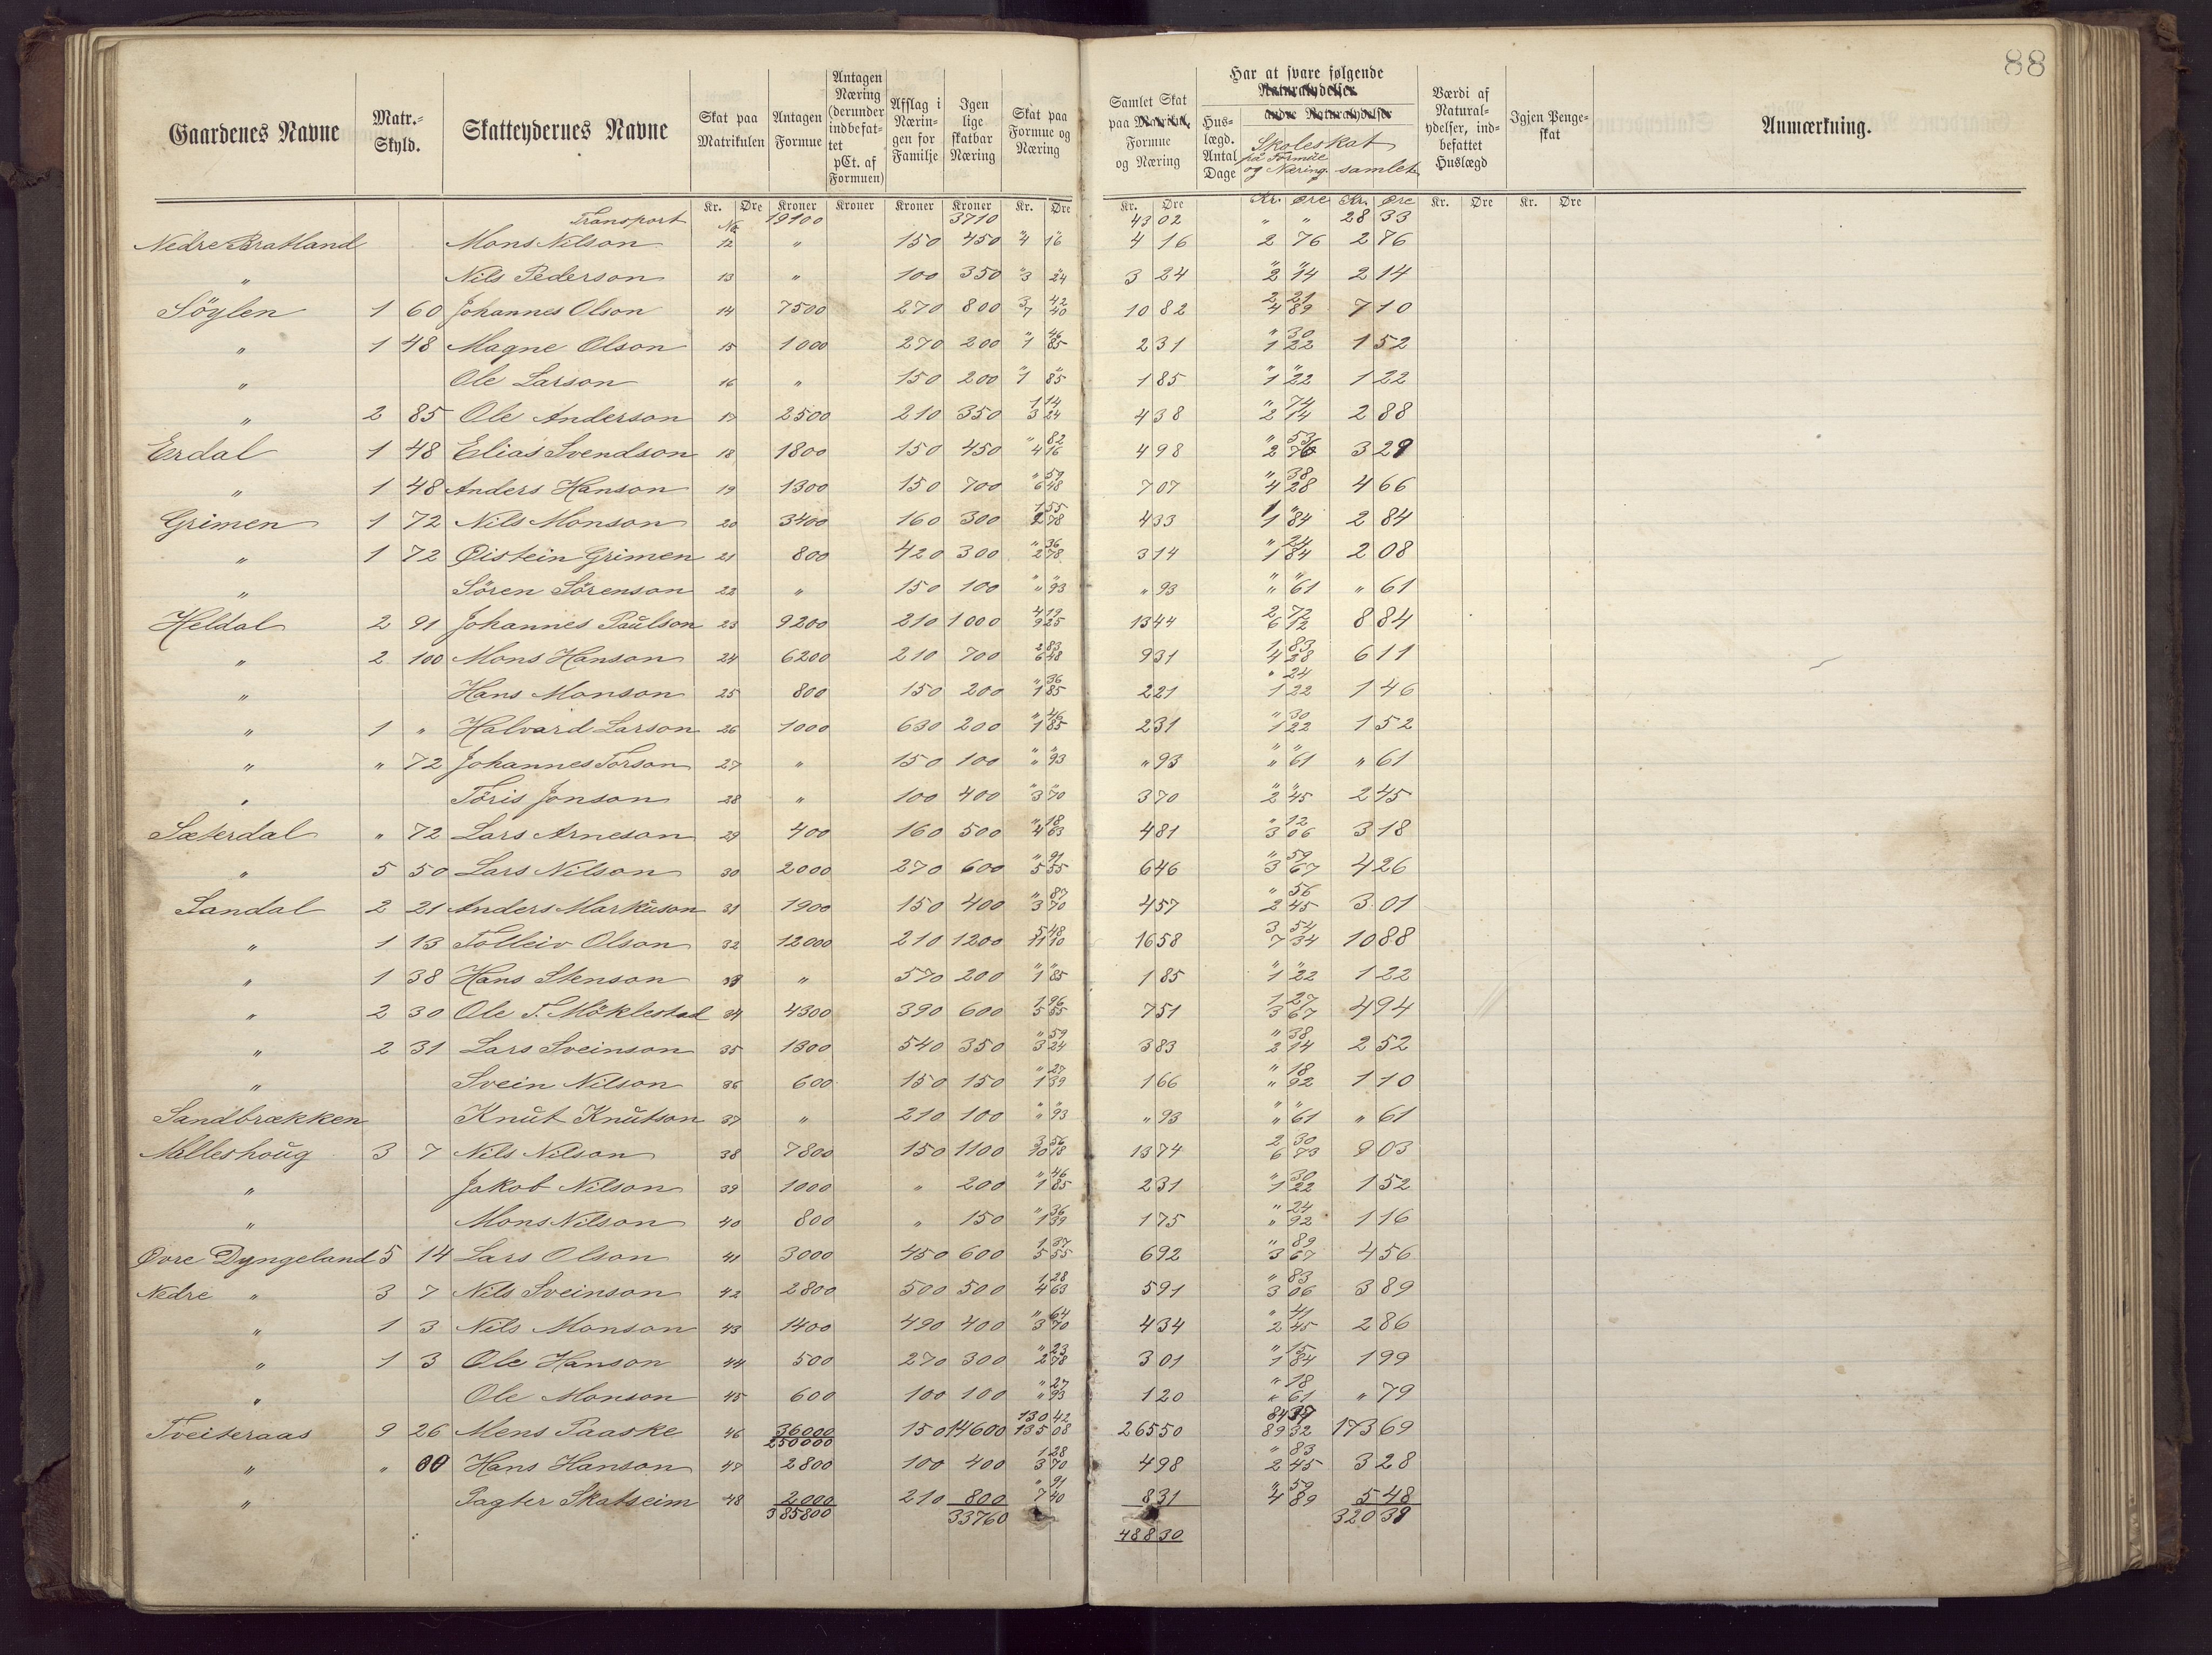 88
Gaardenes Navne | Matr.-Skyld. | Skatteydernes Navne | Skat paa Matrikulen | Antagen Formue | Antagen Næring (derunder indbefattet pCt. af Formuen) | Afslag i Næringen for Familje | Igen lige skatbar Næring | Skat paa Formue og Næring | Samlet Skat paa Matrikul, Formue og Næring | Har at svare følgende Naturalydelser | Huslægd. Antal Dage | andre Naturalydelser Skoleskat på Formue og Næring. samlet | Værdi af Naturalydelser, indbefattet Huslægd | Igjen Pengeskat | Anmærkning.
Kr. Øre Kroner Kroner Kroner Kroner Kr. Øre Kr. Øre Kr. Øre Kr. Øre Kr. Øre Kr. Øre
Transport No 19100 3710 43 02 " " 28 33
Nedre Bratland Mons Nilson 12 " 150 450 " " 4 16 4 16 " " 2 76 2 76
" Nils Pederson 13 " 100 350 " " 3 24 3 24 " " 2 14 2 14
Söylen 1 60 Johannes Olson 14 7500 270 800 3 42 7 40 10 82 2 21 4 89 7 10
" 1 48 Magne Olson 15 1000 270 200 " 46 1 85 2 31 " 30 1 22 1 52
" Ole Larson 16 " 150 200 " " 1 85 1 85 " " 1 22 1 22
" 2 85 Ole Anderson 17 2500 210 350 1 14 3 24 4 38 " 74 2 14 2 88
Erdal 1 48 Elias Svendson 18 1800 150 450 " 82 4 16 4 98 " 53 2 76 3 29
" 1 48 Anders Hanson 19 1300 150 700 " 59 6 48 7 07 " 38 4 28 4 66
Grimen 1 72 Nils Monson 20 3400 160 300 1 55 2 78 4 33 1 " 1 84 2 84
" 1 72 Øistein Grimen 21 800 420 300 " 36 2 78 3 14 " 24 1 84 2 08
" Sören Sörenson 22 " 150 100 " " " 93 " 93 " " " 61 " 61
Heldal 2 91 Johannes Paulson 23 9200 210 1000 4 19 9 25 13 44 2 72 6 12 8 84
" 2 100 Mons Hanson 24 6200 210 700 2 83 6 48 9 31 1 83 4 28 6 11
" Hans Monson 25 800 150 200 " 36 1 85 2 21 " 24 1 22 1 46
" 1 " Halvard Larson 26 1000 630 200 " 46 1 85 2 31 " 30 1 22 1 52
" " 72 Johannes Torson 27 " 150 100 " " " 93 " 93 " " " 61 " 61
" Töris Jonson 28 " 100 400 " " 3 70 3 70 " " 2 45 2 45
Sæterdal " 72 Lars Arneson 29 400 160 500 " 18 4 63 4 81 " 12 3 06 3 18
" 5 50 Lars Nilson 30 2000 270 600 " 91 5 55 6 46 " 59 3 67 4 26
Sandal 2 21 Anders Markuson 31 1900 150 400 " 87 3 70 4 57 " 56 2 45 3 01
" 1 13 Tolleiv Olson 32 12000 210 1200 5 48 11 10 16 58 3 54 7 34 10 88
" 1 38 Hans Stenson 33 " 570 200 " " 1 85 1 85 " " 1 22 1 22
" 2 30 Ole T. Möklestad 34 4300 390 600 1 96 5 55 7 51 1 27 3 67 4 94
" 2 31 Lars Sveinson 35 1300 540 350 " 59 3 24 3 83 " 38 2 14 2 52
" Svein Nilson 36 600 150 150 " 27 1 39 1 66 " 18 " 92 1 10
Sandbrækken Knut Knutson 37 " 210 100 " " " 93 " 93 " " " 61 " 61
Milleshoug 3 7 Nils Nilson 38 7800 150 1100 3 56 10 18 13 74 2 30 6 73 9 03
" Jakob Nilson 39 1000 " 200 " 46 1 85 2 31 " 30 1 22 1 52
" Mons Nilson 40 800 " 150 " 36 1 39 1 75 " 24 " 92 1 16
Øvre Dyngeland 5 14 Lars Olson 41 3000 450 600 1 37 5 55 6 92 " 89 3 67 4 56
Nedre " 3 7 Nils Sveinson 42 2800 500 500 1 28 4 63 5 91 " 83 3 06 3 89
" 1 3 Nils Monson 43 1400 490 400 " 64 3 70 4 34 " 41 2 45 2 86
" 1 3 Ole Hanson 44 500 270 300 " 23 2 78 3 01 " 15 1 84 1 99
" Ole Monson 45 600 100 100 " 27 " 93 1 20 " 18 " 61 " 79
Tveiteraas 9 26 Mens Paaske 46 36000 250000 150 14600 130 42 135 08 265 50 84 37 89 32 173 69
" " Hans Hanson 47 2800 100 400 1 28 3 70 4 98 " 83 2 45 3 28
" Pagter Skatseim 48 2000 210 800 " 91 7 40 8 31 " 59 4 89 5 48
385800 33760 320 39
488 30